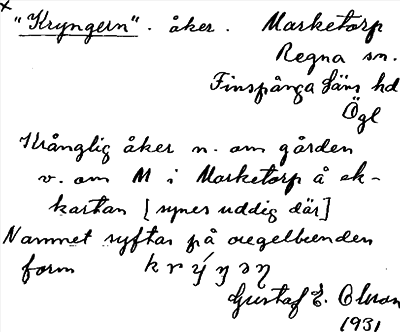 × "Kryngern". åker. Marketorp
Regna sn.
Finspånga läns hd
Ögl
Krånglig åker n. om gården
v. om M i Marketorp å ek-
kartan [synes uddig där]
Namnet syftar på oregelbunden
form k r ý ŋ ə ŋ
Gustaf E. Olsson
1931